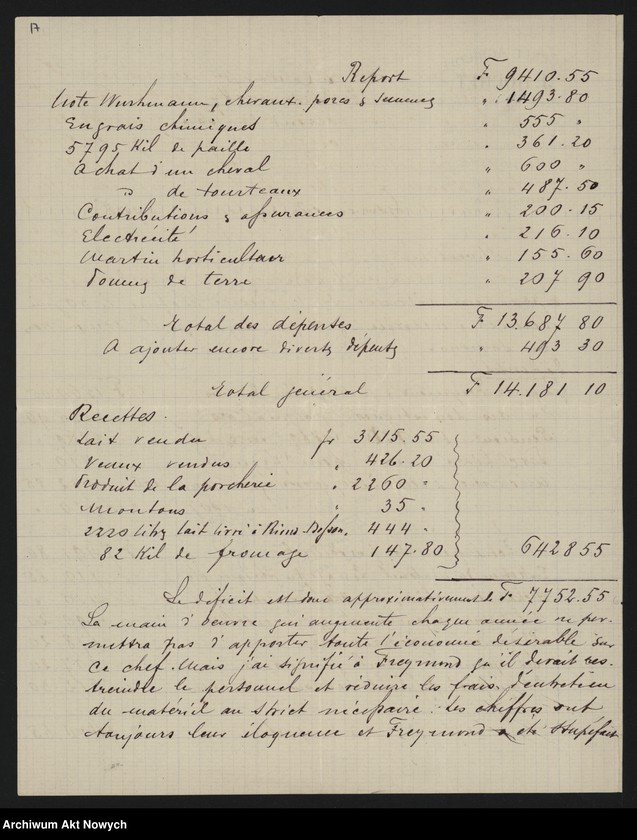 17
Report F 9410.55
Note Wurhmann, chevaux. porcs & semences " 1493.80
Engrais chimiques " 555 "
5795 Kil de paille " 361.20
Achat d'un cheval " 600 "
" de tourteaux " 487.50
Contributions & assurances " 200.15
Electricité " 216.10
Martin horticulteur " 155.60
Pommes de terre " 207 90
Total des dépenses F 13.687 80
A ajouter encore diverses dépenses " 493 30
Total général F 14.181 10
Recettes.
Lait vendu fr 3115.55
Veaux vendus " 426.20
Produit de la porcherie " 2260 "
Moutons " 35 "
2220 lits lait livré à Riond-Bosson. 444 "
82 Kil de fromage 147.80 6428 55
Le déficit est donc approximativement de F 7752.55
La main d'oeuvre qui augmente chaque année ne per-
mettra pas d'apporter toute l'économie désirable sur
ce chef. Mais j'ai signifié à Freymond qu'il devait res-
treindre le personnel et réduire les frais d'entretien
du matériel au strict nécessaire. Les chiffres ont
toujours leur éloquence et Freymond a été stupéfait
Archiwum Akt Nowych